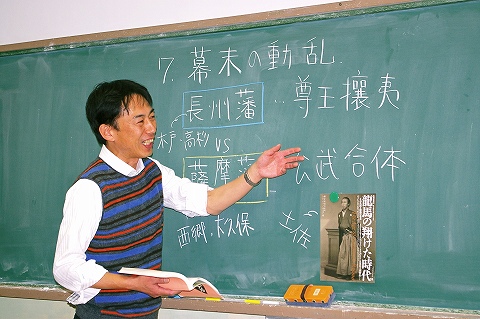 7. 幕末の動乱
長州藩 ‥尊王攘夷
木戸・高杉 VS
薩摩藩 公武合体
西郷・大久保 土佐
龍馬の翔けた時代